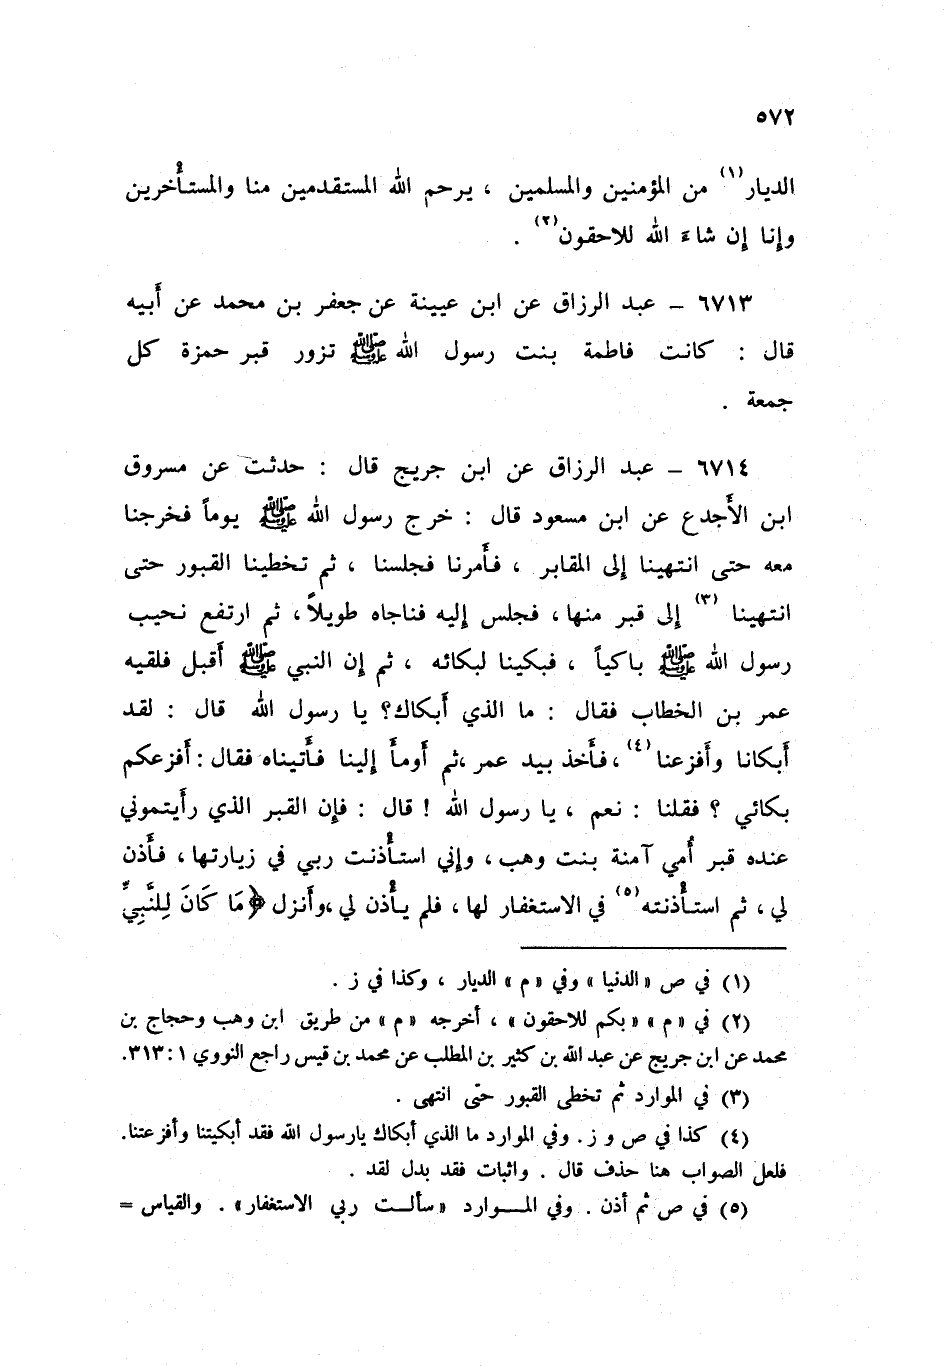 ٥٧٢
الديار(١) من المؤمنين والمسلمين ، يرحم الله المستقدمين منا والمستأُخرين
وإنا إن شاءَ الله للاحقون(٢) .
٦٧١٣ – عبد الرزاق عن ابن عيينة عن جعفر بن محمد عن أَبيه
قال : كانت فاطمة بنت رسول الله ﷺ تزور قبر حمزة كل
جمعة .
٦٧١٤ – عبد الرزاق عن ابن جريج قال : حدثت عن مسروق
ابن الأَجدع عن ابن مسعود قال : خرج رسول الله ﷺ يوماً فخرجنا
معه حتى انتهينا إلى المقابر ، فأَمرنا فجلسنا ، ثم تخطينا القبور حتى
انتهينا (٣) إلى قبر منها، فجلس إليه فناجاه طويلاً، ثم ارتفع نحيب
رسول الله ﷺ باكياً ، فبكينا لبكائه ، ثم إن النبي ﷺ أَقبل فلقيه
عمر بن الخطاب فقال : ما الذي أَبكاك؟ يا رسول الله قال : لقد
أَبكانا وأَفزعنا(٤) ، فأَخذ بيد عمر ،ثم أَومأَ إلينا فأَتيناه فقال : أَفزعكم
بكائي ؟ فقلنا : نعم ، يا رسول الله ! قال : فإن القبر الذي رأَيتموني
عنده قبر أُمي آمنة بنت وهب ، وإني استأْذنت ربي في زيارتها ، فأَذن
لي ، ثم استأْذنته(٥) في الاستغفار لها ، فلم يأْذن لي ،وأَنزل ﴿ مَا كَانَ لِلنَّبِيِّ
(١) في ص «الدنيا» وفي «م» الديار ، وكذا في ز .
(٢) في «م» «بكم للاحقون» ، أخرجه «م» من طريق ابن وهب وحجاج بن
محمد عن ابن جريج عن عبد الله بن كثير بن المطلب عن محمد بن قيس راجع النووي ١ : ٣١٣.
(٣) في الموارد ثم تخطى القبور حتّى انتهى .
(٤) كذا في ص و ز. وفي الموارد ما الذي أبكاك يارسول الله فقد أبكيتنا وأفزعتنا.
فلعل الصواب هنا حذف قال . واثبات فقد بدل لقد .
(٥) في ص ثم أذن . وفي المــوارد «سألــت ربي الاستغفار» . والقياس =